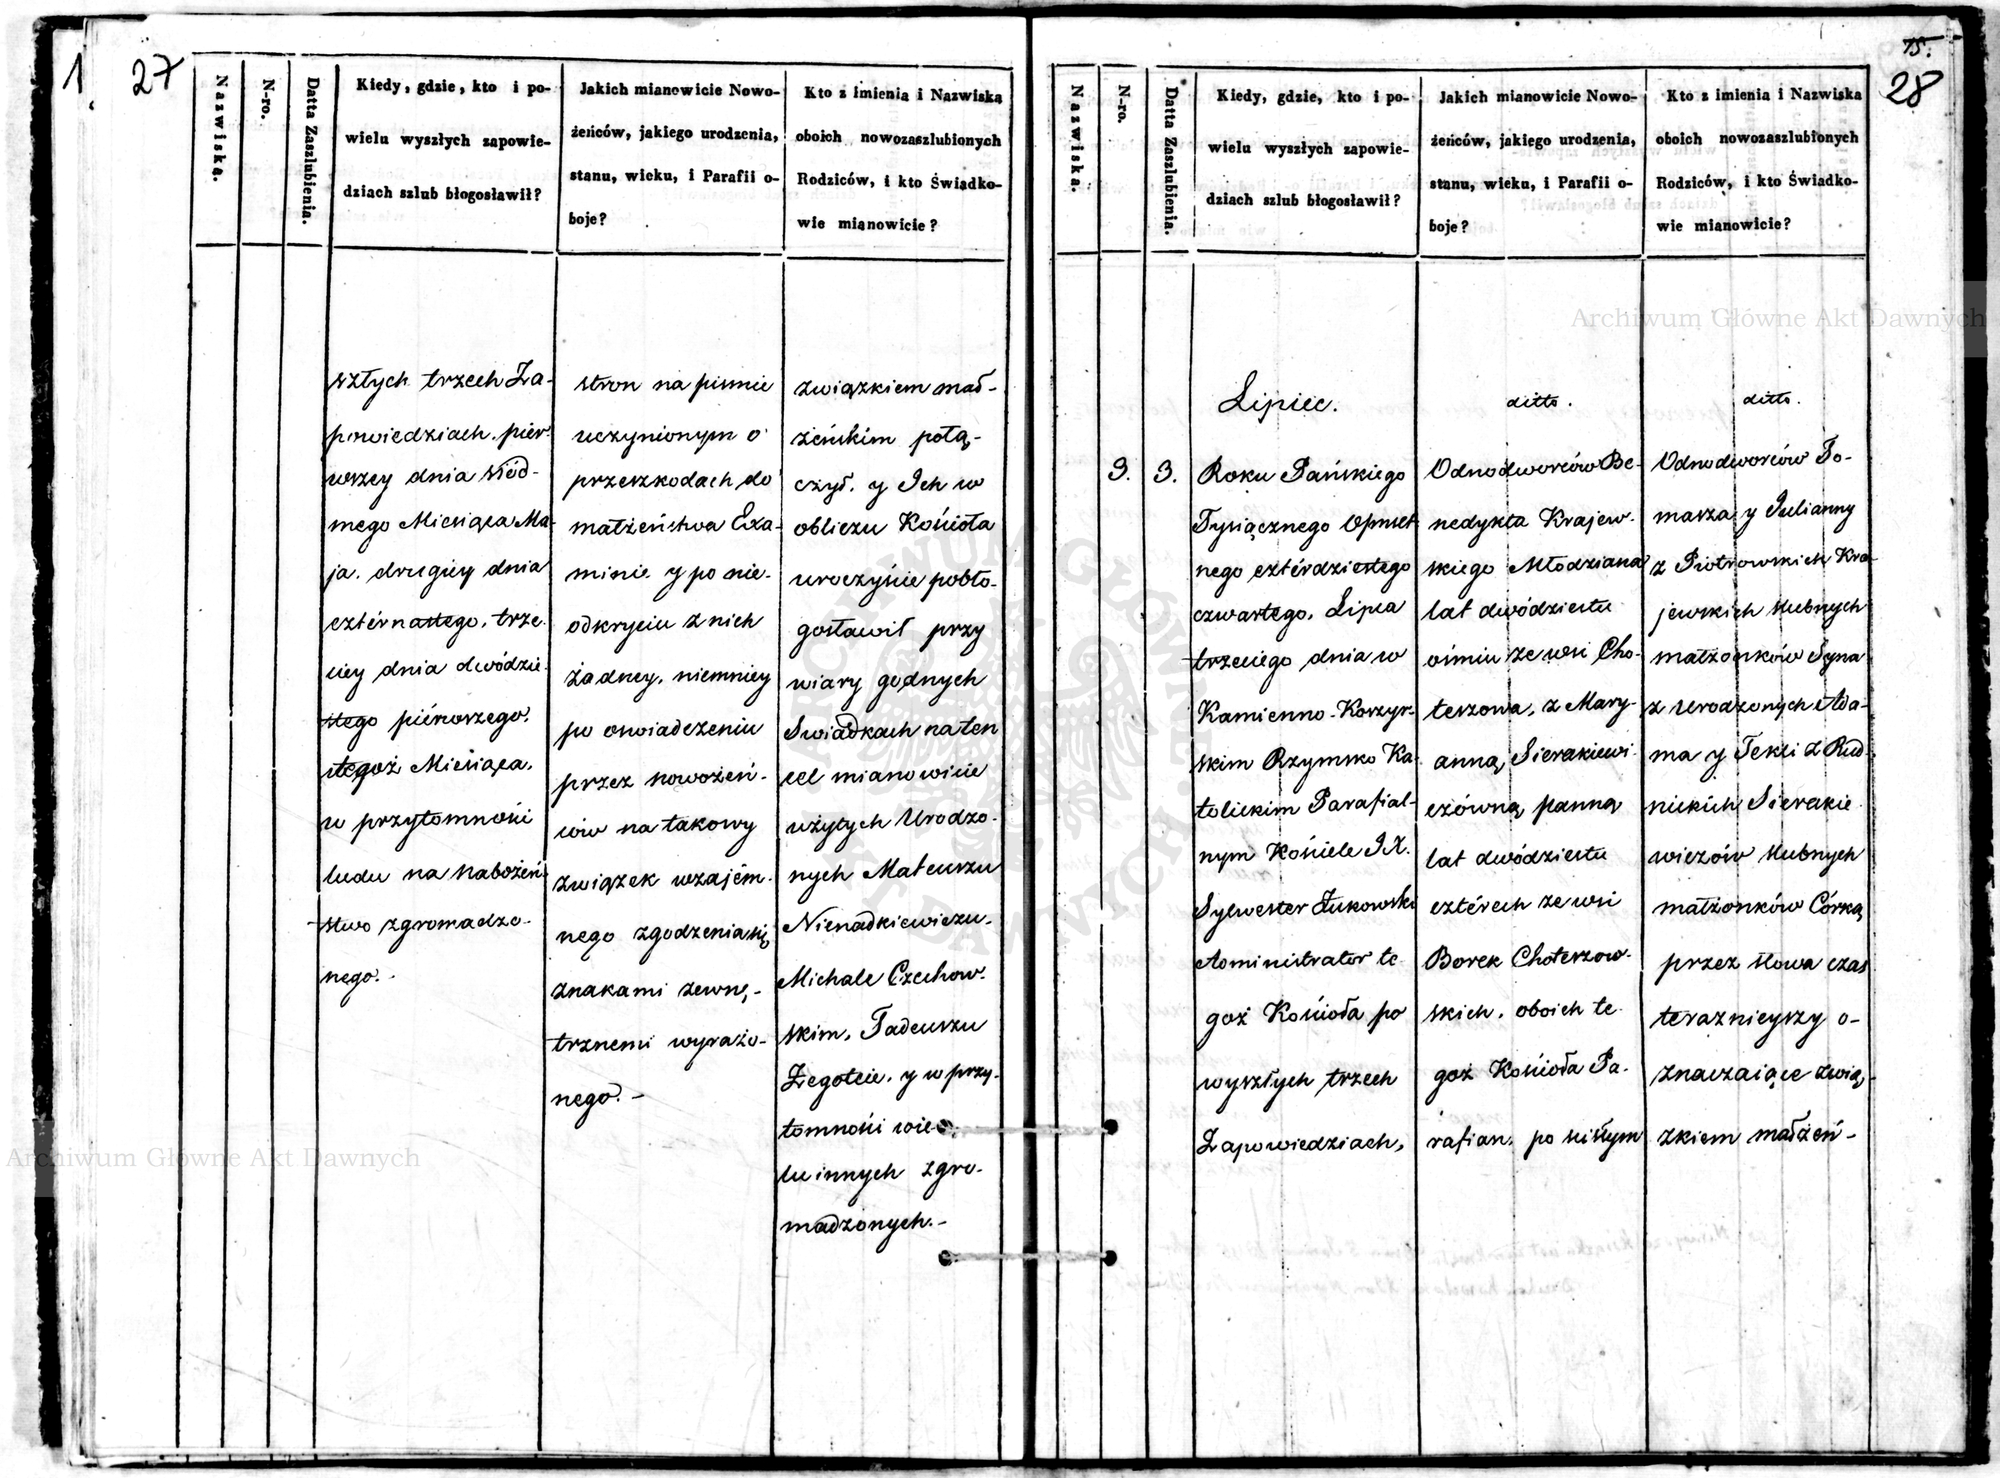 1.
27
Nazwiska.
N-ro.
Datta Zaszlubienia.
Kiedy, gdzie, kto i po-
wielu wyszłych zapowie-
dziach szlub błogosławił?
Jakich mianowicie Nowo-
żeńców, jakiego urodzenia,
stanu, wieku, i Parafii o-
boje?
Kto z imienia i Nazwiska
oboich nowozaszlubionych
Rodziców, i kto Świadko-
wie mianowicie?
szłych trzech Za-
powiedziach, pier-
wszey dnia siód-
mego Miesiąca Ma-
ja, drugiey dnia
cztérnastego, trze-
ciey dnia dwódzie-
stego piérwszego,
tegoż Miesiąca,
w przytomności
ludu na nabożeń-
stwo zgromadzo-
nego.-
stron na piśmie
uczynionym o
przeszkodach do
małżeństwa Exa-
minie y po nie-
odkryciu z nich
żadney, niemniey
po oswiadczeniu
przez nowożeń-
ców na takowy
związek wzajem-
nego zgodzenia się
znakami zewnę-
trznemi wyrażo-
nego.-
związkiem mał-
żeńskim połą-
czył, y Ich w
obliczu Kościoła
uroczyście pobło-
gosławił przy
wiary godnych
Swiadkach na ten
cel mianowicie
użytych Urodzo-
nych Mateuszu
Nienadkiewiczu,
Michale Czechow-
skim, Tadeuszu
Żegotcie, y w przy-
tomności wie-
lu innych zgro-
madzonych.-
15.
28
Nazwiska.
N-ro.
Datta Zaszlubienia.
Kiedy, gdzie, kto i po-
wielu wyszłych zapowie-
dziach szlub błogosławił?
Jakich mianowicie Nowo-
żeńców, jakiego urodzenia,
stanu, wieku, i Parafii o-
boje?
Kto z imienia i Nazwiska
oboich nowozaszlubionych
Rodziców, i kto Świadko-
wie mianowicie?
Lipiec.
9.
3.
Roku Pańskiego
Tysiącznego Ośmset-
nego cztérdziestego
czwartego, Lipca
trzeciego dnia w
Kamienno-Koszyr-
skim Rzymsko Ka-
tolickim Parafial-
nym Kościele JX.
Sylwester Żukowski
Administrator te-
goż Kościoła po
wyszłych trzech
Zapowiedziach,
ditto.
Odnodworców Be-
nedykta Krajew-
skiego Młodziana
lat dwódziestu
ośmiu ze wsi Cho-
teszowa, z Mary-
anną Sierakiewi-
czówną panną
lat dwódziestu
cztérech ze wsi
Borek Choteszow-
skich, oboich te-
goż Kościoła Pa-
rafian, po scisłym
ditto.
Odnodworców To-
masza y Julianny
z Piotrowskich Kra-
jewskich slubnych
małżonków Syna
z Urodzonych Ada-
ma y Tekli z Rud-
nickich Sierakie-
wiczów slubnych
małżonków Córką
przez słowa czas
teraznieyszy o-
znaczające zwią-
zkiem małżeń-
Archiwum Główne Akt Dawnych
Archiwum Główne Akt Dawnych
ARCHIWUM GŁÓWNE AKT DAWNYCH